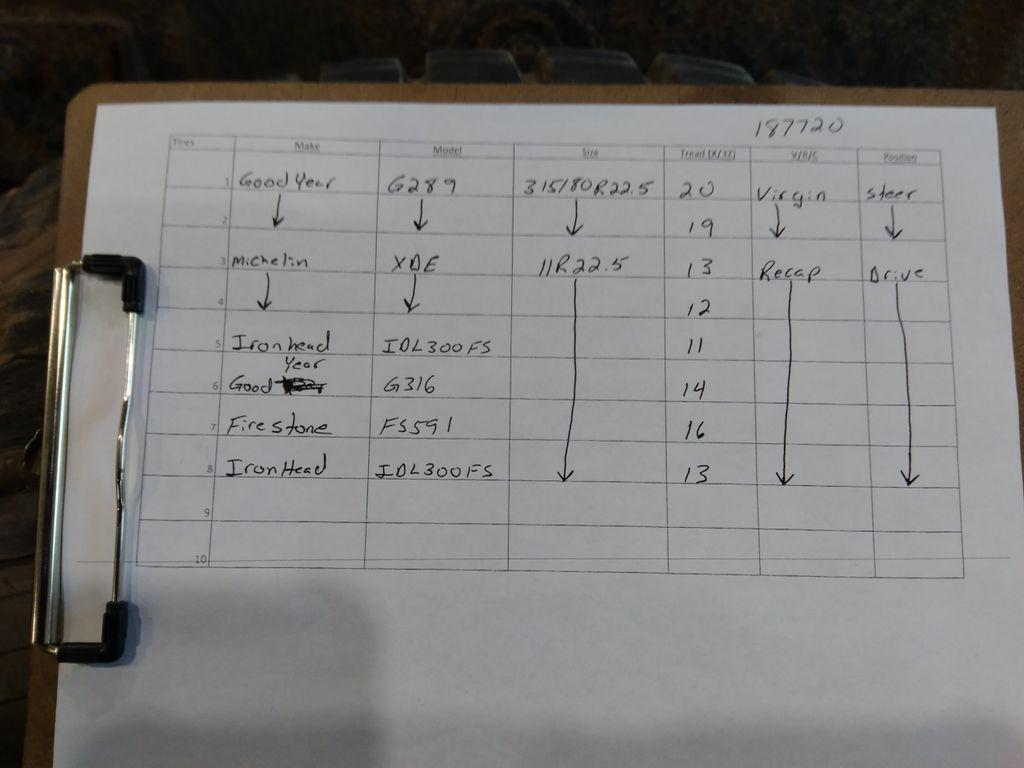 187720
Tires Make Model Size Tread (X/32) V/R/S Position
1 Good Year G289 315/80R22.5 20 Virgin steer
2 ↓ ↓ ↓ 19 ↓ ↓
3 Michelin XDE 11R22.5 13 Recap Drive
4 ↓ ↓ 12
5 Ironhead IDL300FS 11
Year
6 Good G316 14
7 Firestone FS591 16
8 IronHead IDL300FS ↓ 13 ↓ ↓
9
10